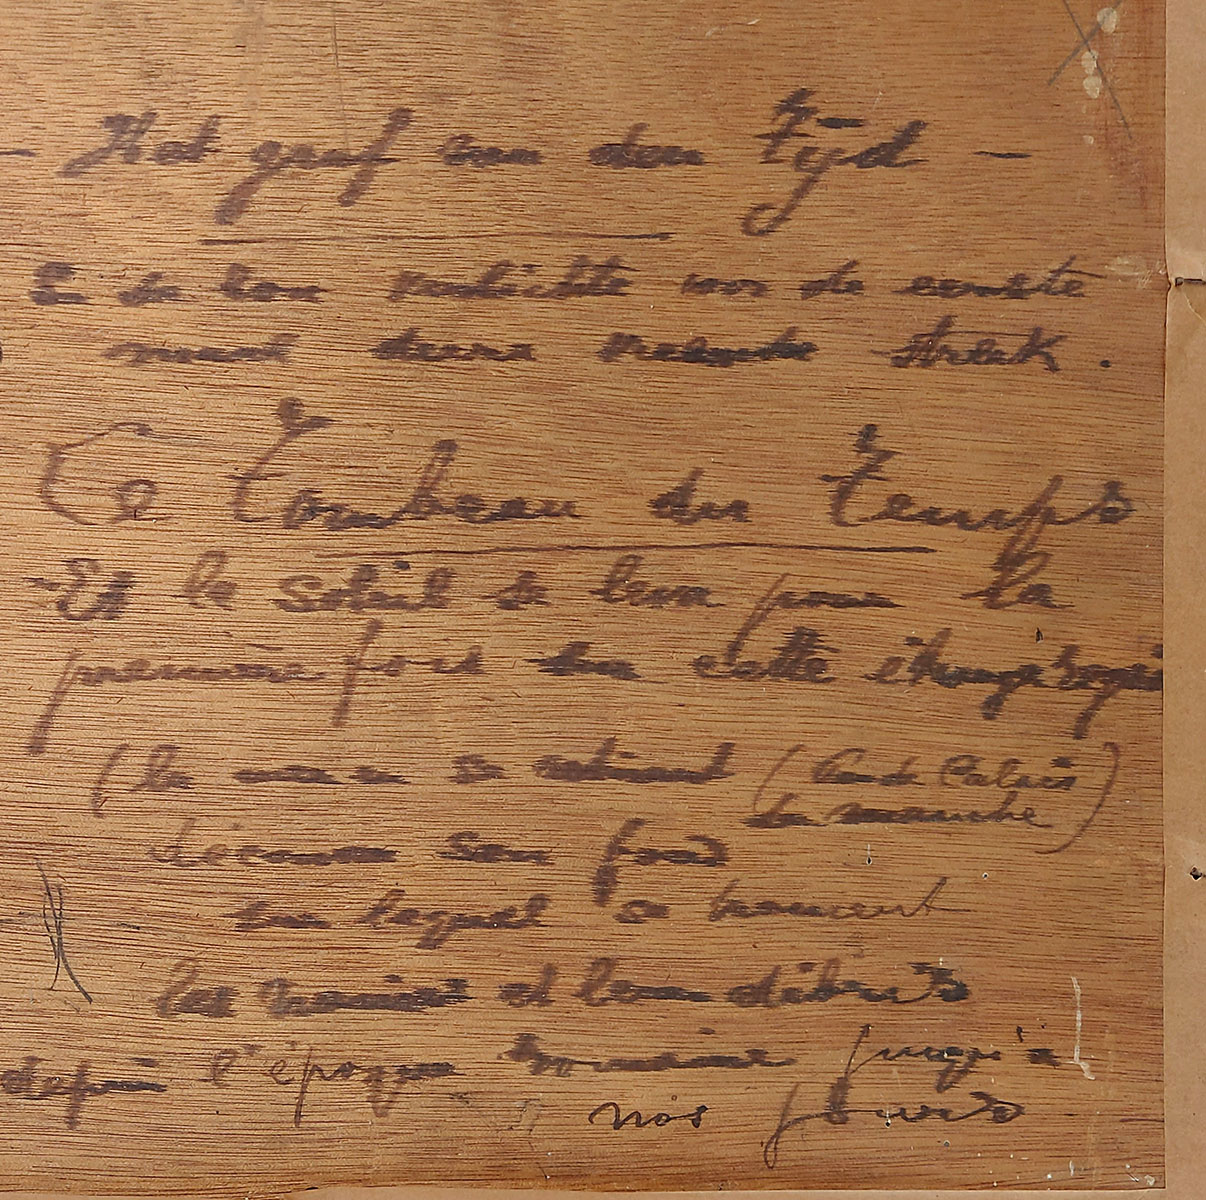 — Het graf van den Tijd —
E de zon verlichtte voor de eerste
maal deze vreemde streek.
Le Tombeau du Temps
- Et le soleil se leva pour la
première fois sur cette étrange région
(la mer se retirant (Pas de Calais
la manche)
découvre son fond
sur lequel se trouvent
les navires et leurs débris
depuis l'époque romaine jusqu'à
nos jours